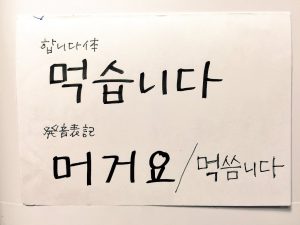 합니다体
먹습니다
発音表記
머거요/먹씀니다